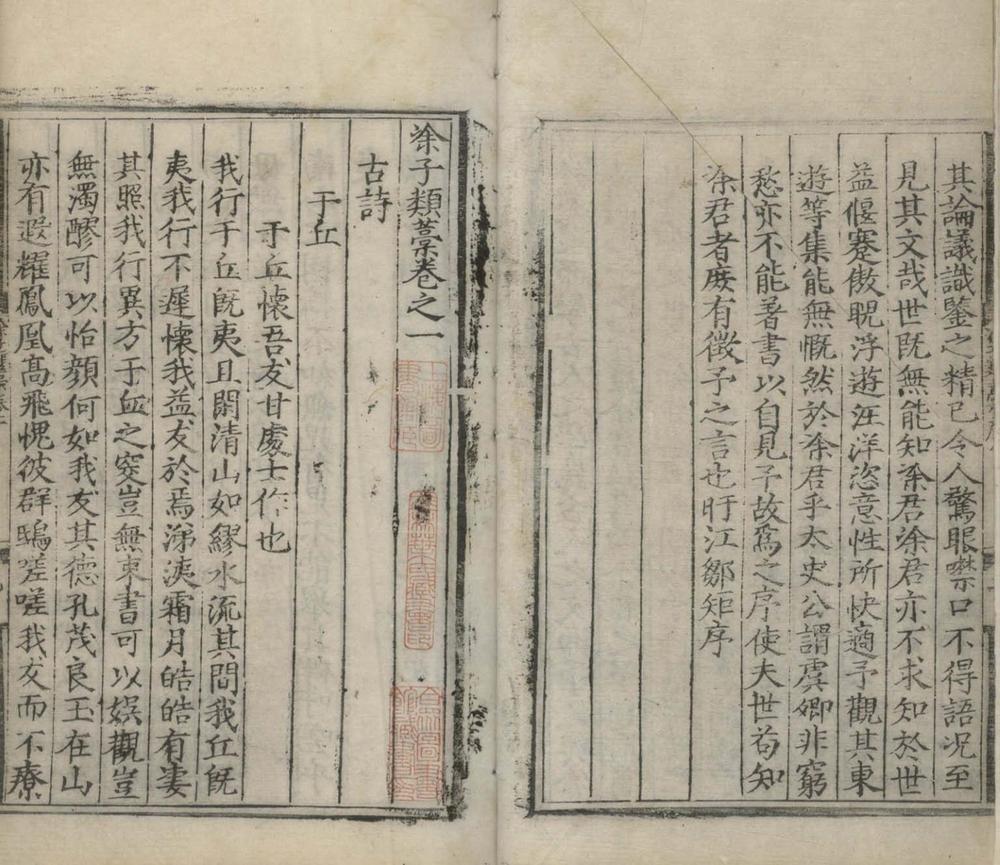 其論議識鑒之精已令人驚眼噤口不得語况至
見其文哉世既無能知涂君涂君亦不求知於世
益偃蹇傲睨浮遊汪洋恣意性所快適予觀其東
遊等集能無慨然於涂君乎太史公謂虞卿非窮
愁亦不能著書以自見予故爲之序使夫世苟知
涂君者庻有徵予之言也旴江鄒矩序
涂子類藁卷之一
古詩
于丘
于丘懷吾友甘處士作也
我行于丘既夷且閑清山如繆水流其間我丘既
夷我行不遲懷我益友於焉涕洟霜月皓皓有凄
其照我行異方于丘之窔豈無東書可以娱觀豈
無濁醪可以怡顔何如我友其德孔茂良玉在山
亦有遐耀鳳凰髙飛愧彼群鴟嗟嗟我友而不療